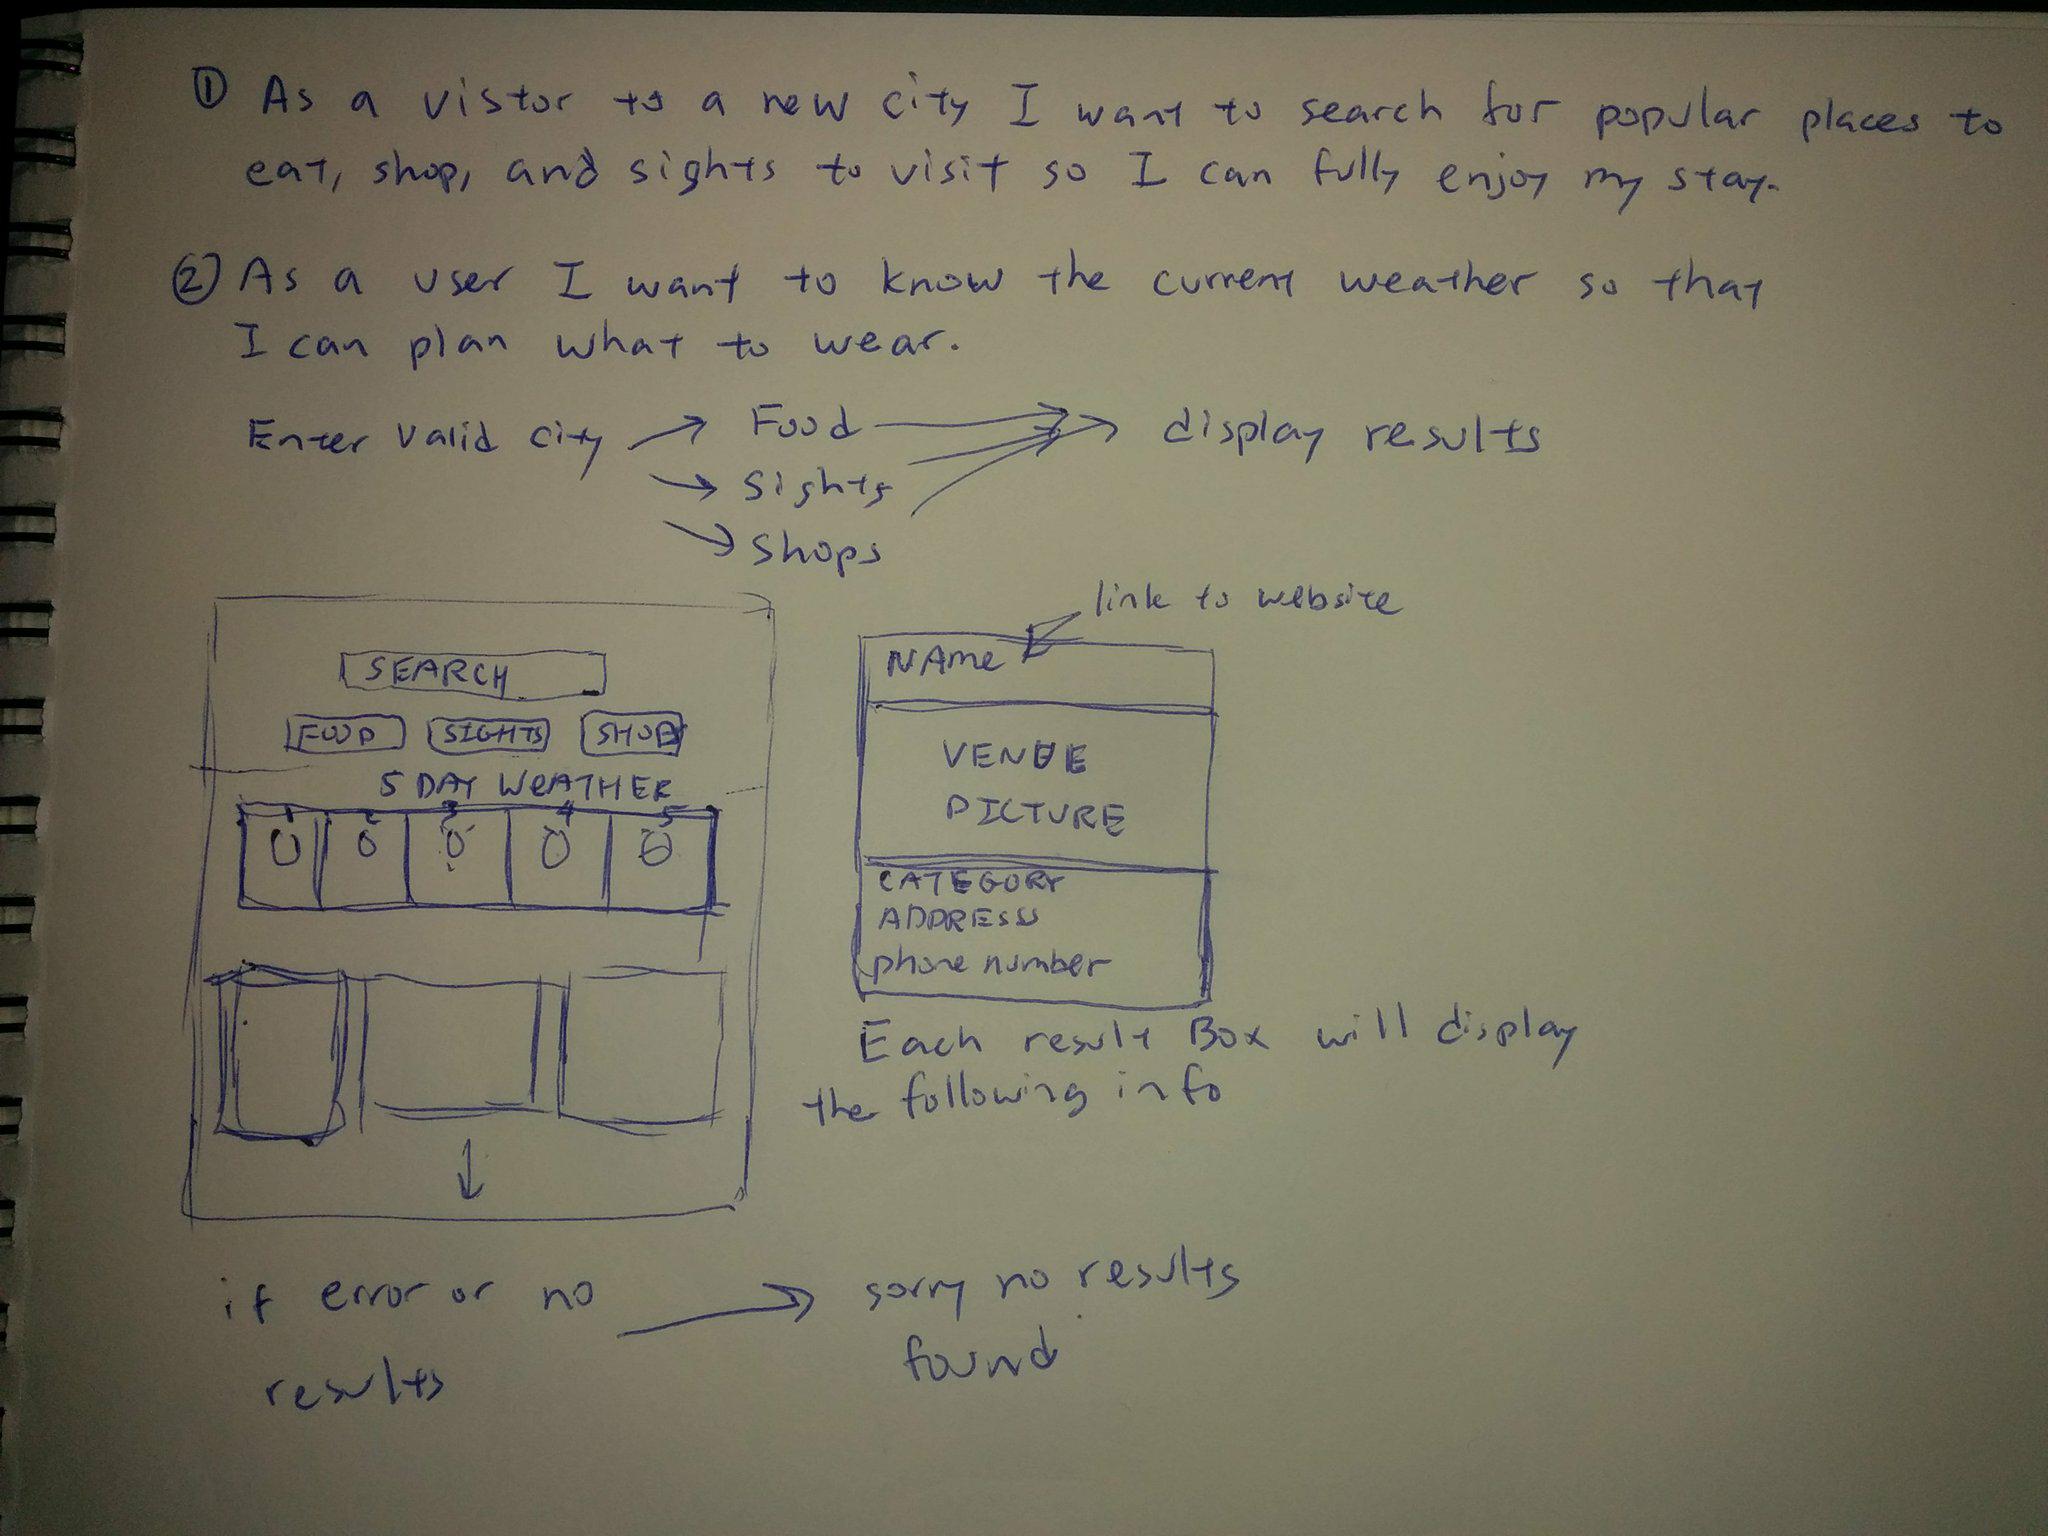 ① As a vistor to a new city I want to search for popular places to
eat, shop, and sights to visit so I can fully enjoy my stay.
② As a user I want to know the current weather so that
I can plan what to wear.
Enter valid city → Food → display results
→ Sights
→ Shops
SEARCH
FOOD SIGHTS SHOPS
5 DAY WEATHER
1 2 3 4 5
link to website
NAme
VENUE
PICTURE
CATEGORY
ADDRESS
phone number
Each result Box will display
the following info
if error or no → sorry no results
results
found